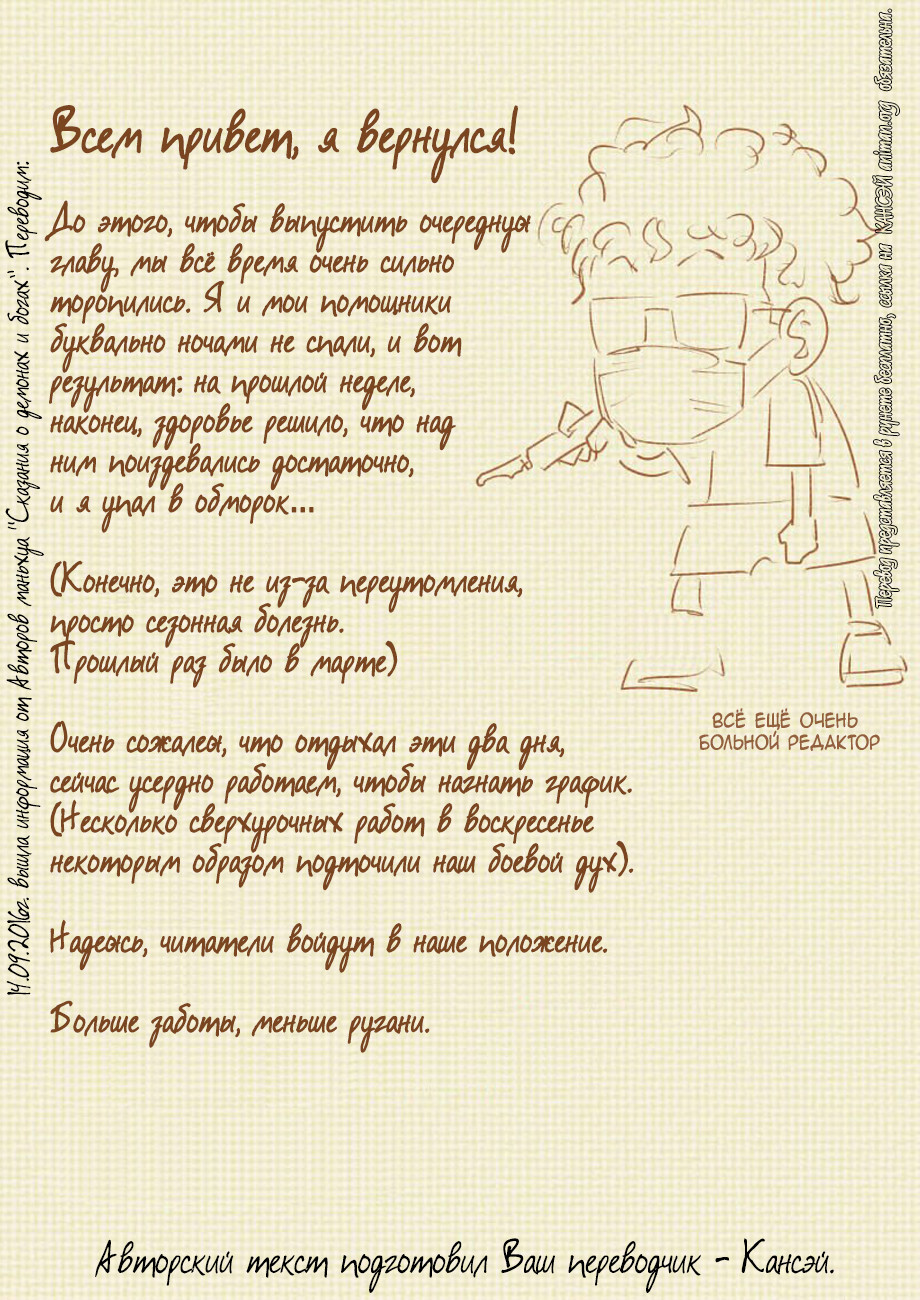 Всем привет, я вернулся!
До этого, чтобы выпустить очередную
главу, мы всё время очень сильно
торопились. Я и мои помощники
буквально ночами не спали, и вот
результат: на прошлой неделе,
наконец, здоровье решило, что над
ним поиздевались достаточно,
и я упал в обморок...
(Конечно, это не из-за переутомления,
просто сезонная болезнь.
Прошлый раз было в марте)
Очень сожалею, что отдыхал эти два дня,
сейчас усердно работаем, чтобы нагнать график.
(Несколько сверхурочных работ в воскресенье
некоторым образом подточили наш боевой дух).
Надеюсь, читатели войдут в наше положение.
Больше заботы, меньше ругани.
ВСЁ ЕЩЁ ОЧЕНЬ
БОЛЬНОЙ РЕДАКТОР
14.09.2016г. вышла информация от Авторов маньхуа "Сказания о демонах и богах". Переводим:
Перевод предоставляется в рунете бесплатно, ссылка на КАНСЭЙ animan.org обязательна.
Авторский текст подготовил Ваш переводчик - Кансэй.